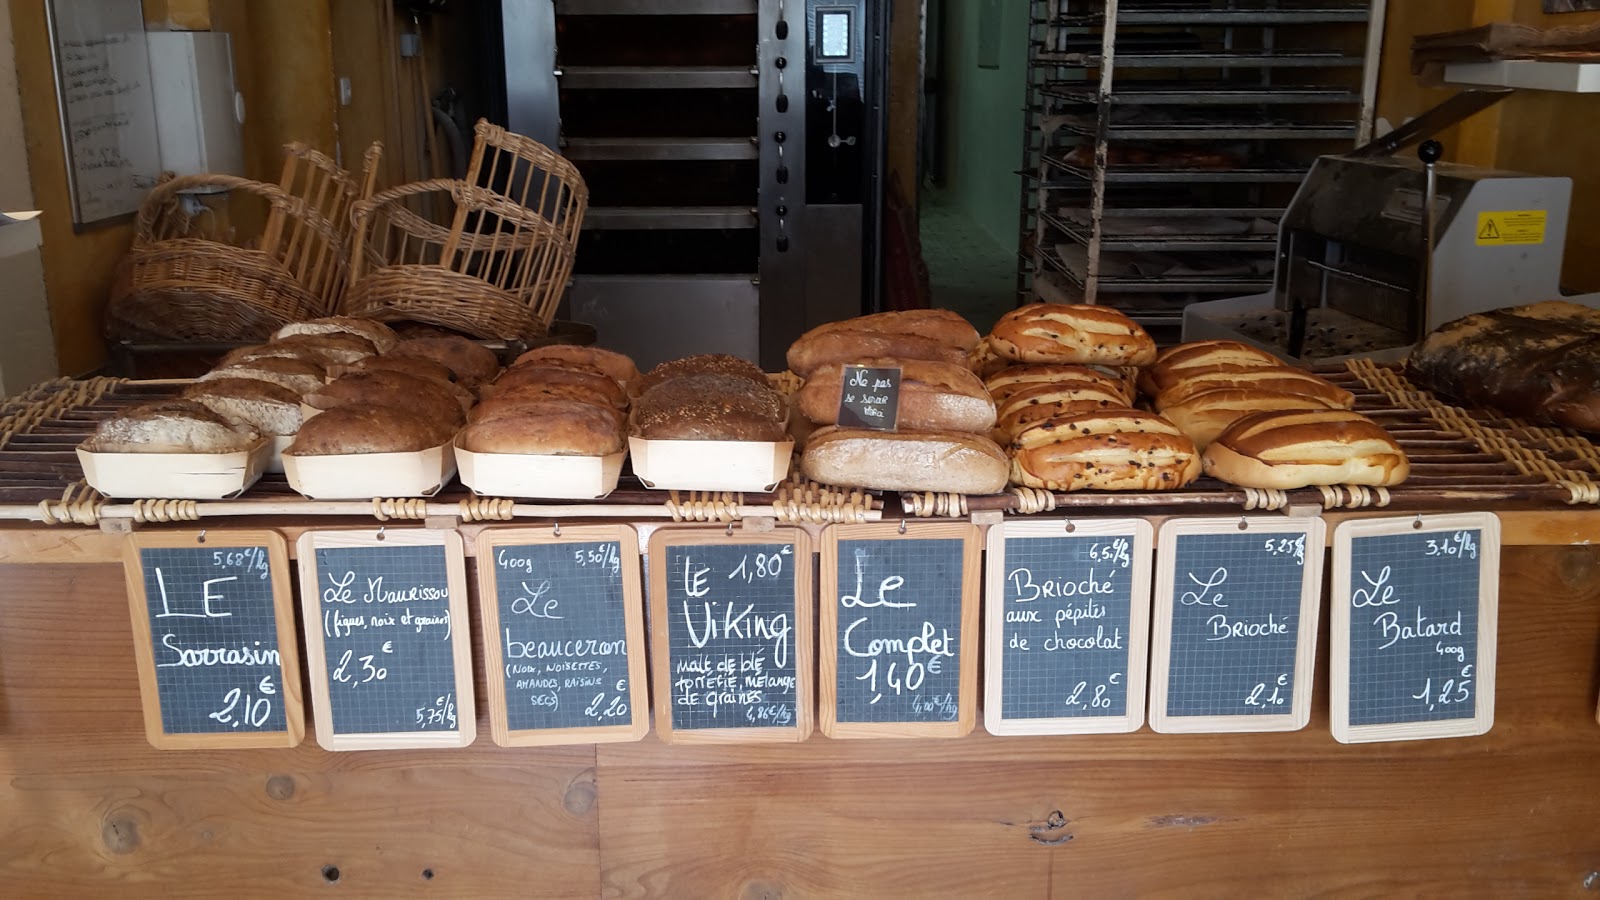 Ne pas
se servir
5,68€/kg
LE
Sarrasin
2,10€
Le Maurissou
(figues, noix et graines)
2,30€
5,75€/kg
400g 5,50€/kg
Le
beauceron
(NOIX, NOISETTES,
AMANDES, RAISINS
SECS)
2,20€
LE 1,80€
Viking
Malt de blé
torréfié, mélange
de graines
4,86€/kg
Le
Complet
1,40€
4,00€/kg
6,5€/kg
Brioché
aux pépites
de chocolat
2,80€
5,25€/kg
Le
Brioché
2,10€
3,10€/kg
Le
Batard
400g
1,25€